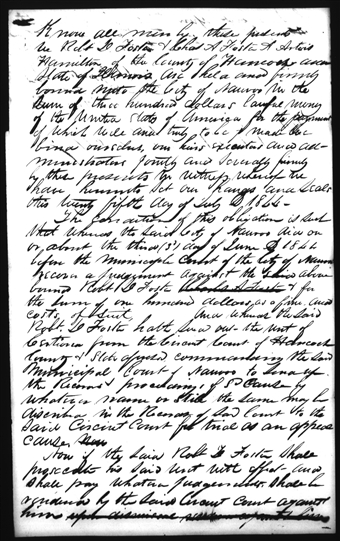 Know all men by these presents
we Robt D Foster & Chas A Foster & Artois
Hamilton of the County of Hancock and
State of Illinois are held and firmly
bound unto the City of Nauvoo in the
Sum of three hundred dollars lawful money
of the United States of America for the payment
of which well and truly to be made we
bind ourselves, our heirs executors and ad-
ministrators jointly and severally firmly
by these presents In witness whereof we
have hereunto set our hands and Seals
this twenty fifth day of July 1844-
The condition of this obligation is such
that whereas the Said City of Nauvoo did on
or, about the third (3d) day of June 1844
before the Municipal Court of the City of Nauvoo
recover a judgement against the above
bound Robt D Foster Charles A Foster & for
the Sum of one hundred dollars, as a fine, and
costs, of Suit, And whereas the Said
Robt. D Foster hath Sued out the writ of
Certiorari from the Circuit Court of Hancock
County & State aforesaid commanding the Said
Municipal Court of Nauvoo to Send up
the Record & proceedings of Sd Cause by
whatever name or Stile the Same may be
described in the Records of Said Court to the
Said Circuit Court for trial as an appeal
cause,
Now if the Said Robt D Foster Shall
prosecute his Said writ with effect, and
Shall pay whatever judgement Shall be
rendered by the Said Circuit Court against
him upon dismissal